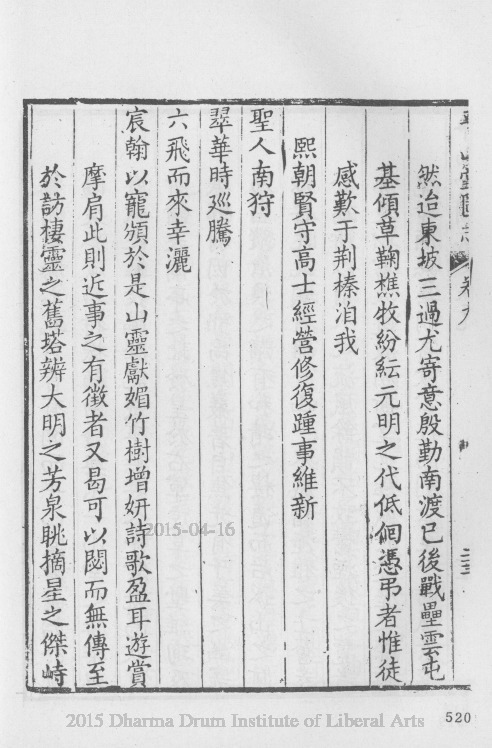 平山堂圖志 卷九
然迨東坡三過尤寄意殷勤南渡已後戰壘雲屯
基傾草鞠樵牧紛紜元明之代低徊憑弔者惟徒
感歎于荆榛洎我
熙朝賢守高士經營修復踵事維新
聖人南狩
翠華時巡騰
六飛而來幸灑
宸翰以寵頒於是山靈獻媚竹樹增妍詩歌盈耳遊賞
摩肩此則近事之有徵者又曷可以閟而無傳至
於訪棲靈之舊塔辨大明之芳泉眺摘星之傑峙
2015-04-16
520
2015 Dharma Drum Institute of Liberal Arts